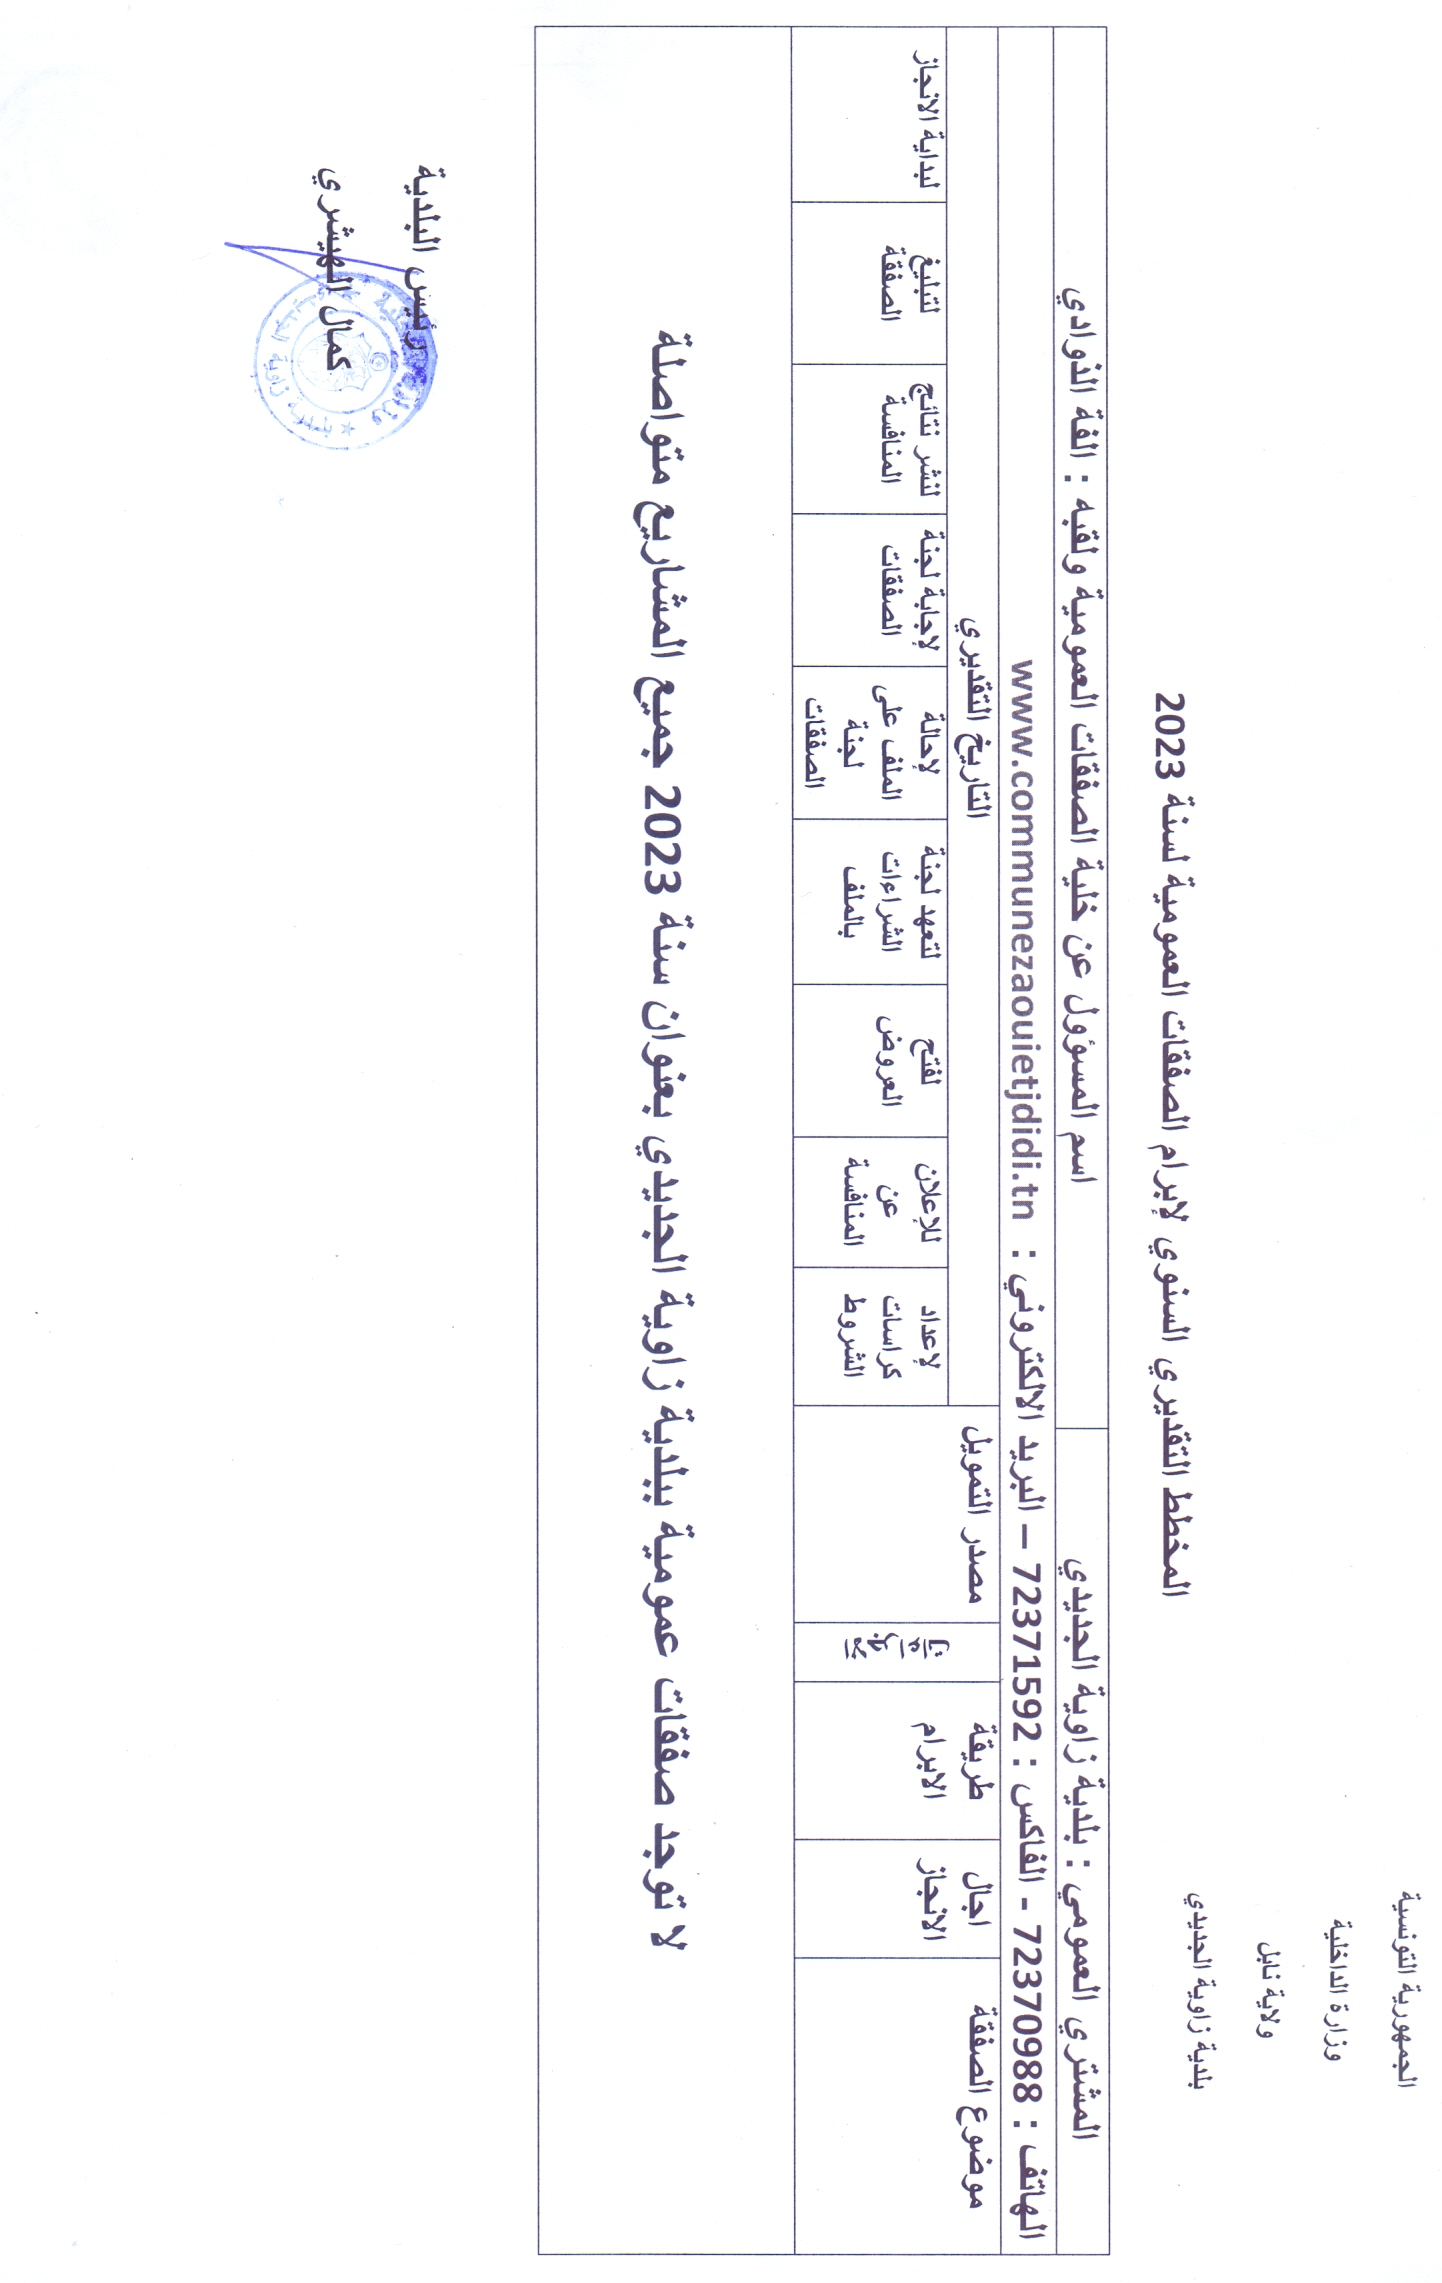 الجمهورية التونسية
وزارة الداخلية
ولاية نابل
بلدية زاوية الجديدي
المخطط التقديري السنوي لإبرام الصفقات العمومية لسنة 2023
المشتري العمومي : بلدية زاوية الجديدي
اسم المسؤول عن خلية الصفقات العمومية ولقبه : الفة الذوادي
الهاتف : 72370988 - الفاكس : 72371592 – البريد الالكتروني : www.communezaouietjdidi.tn
موضوع الصفقة
اجال
الانجاز
طريقة
الابرام
مصدر التمويل
التاريخ التقديري
لإعداد
كراسات
الشروط
للإعلان
عن
المنافسة
لفتح
العروض
لتعهد لجنة
الشراءات
بالملف
لإحالة
الملف على
لجنة
الصفقات
لإجابة لجنة
الصفقات
لنشر نتائج
المنافسة
لتبليغ
الصفقة
لبداية الانجاز
لا توجد صفقات عمومية ببلدية زاوية الجديدي بعنوان سنة 2023 جميع المشاريع متواصلة
رئيس البلدية
كمال الهيشري